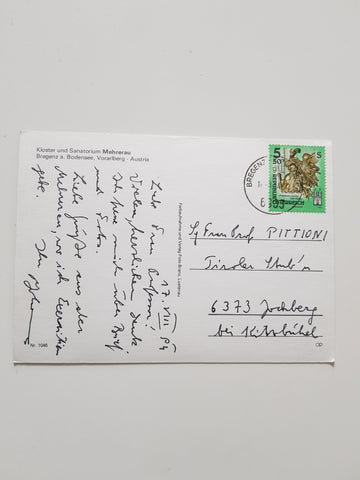 Kloster und Sanatorium Mehrerau
Bregenz a. Bodensee, Vorarlberg - Austria
17. VIII 94
Liebe Frau Professor!
Vielen herzlichen Dank
Ich freue mich über Brief
und Fotos.
Liebe Grüße aus der
Mehrerau, wo ich Exerzitien
gebe. Ihr
Nr. 1046
Farbaufnahme und Verlag
BREGENZ
5
50
S
REPUBLIK
ÖSTERREICH
Sg Frau Prof PITTIONI
Tiroler Stub'n
6373 Jochberg
bei Kitzbühel